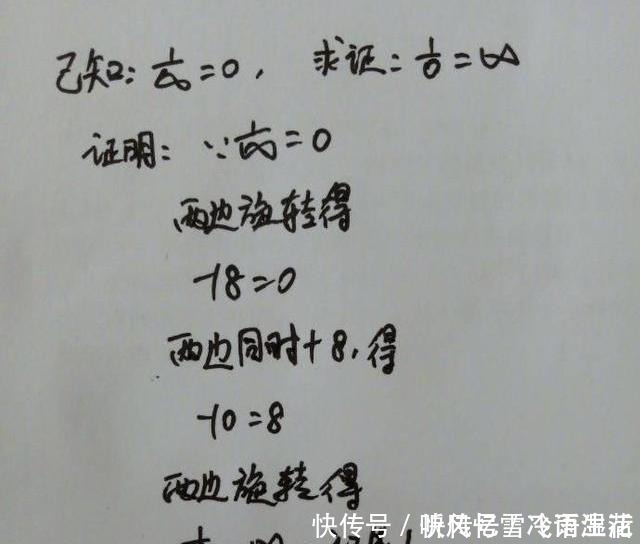 已知：1/∞=0，求证：1/0=∞
证明：∵1/∞=0
两边旋转得
-18=0
两边同时+8，得
-10=8
两边旋转得
快传号/